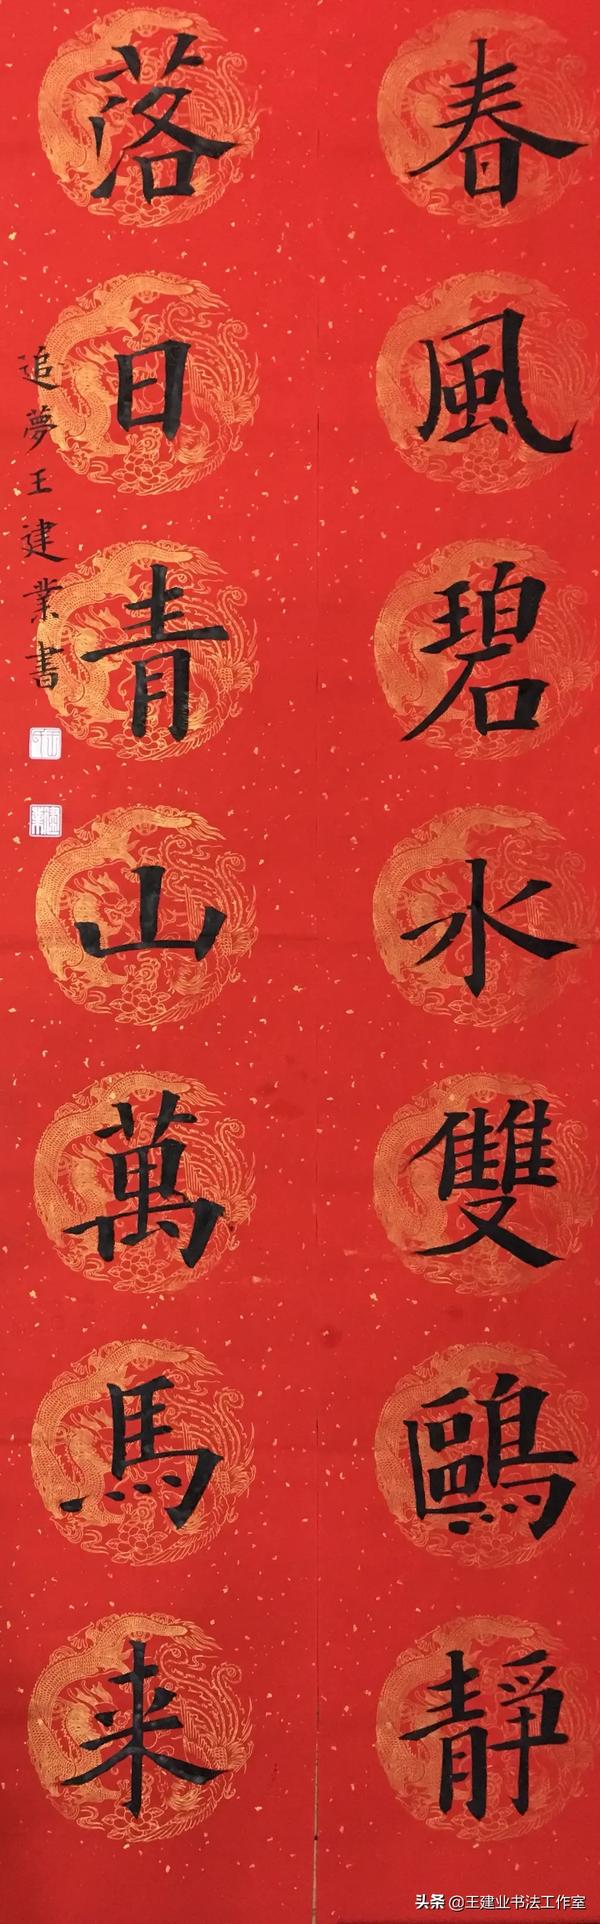 春風碧水雙鷗靜
落日青山萬馬来
追夢王建業書
头条 @王建业书法工作室